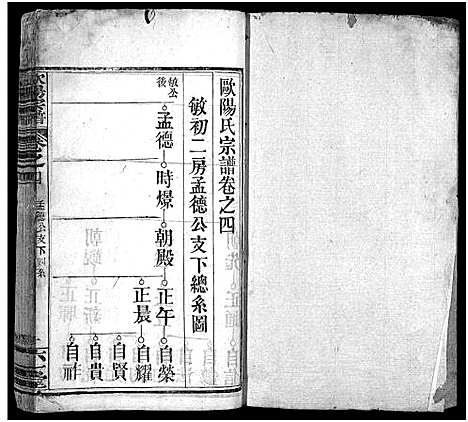 歐陽氏宗譜卷之四
敏初二房孟德公支下總系圖
敏公後
孟德
時燝
朝殿
正午
自榮
自耀
正晨
自賢
自貴
自祥
歐陽宗譜
卷之四
孟德公支下總系
六一堂